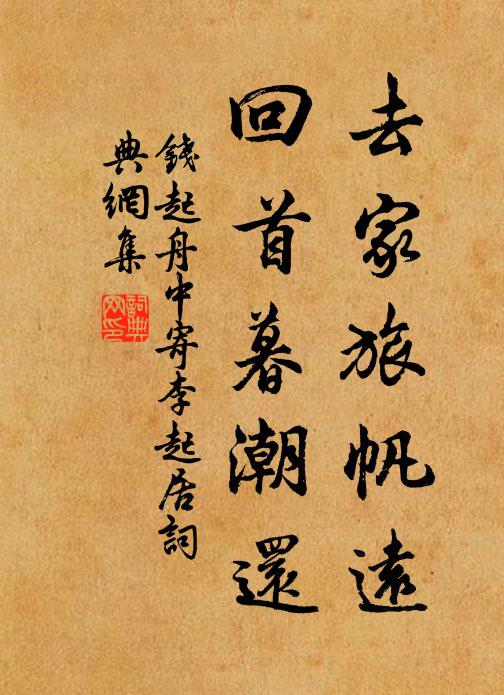 去家旅帆遠
回首暮潮還
錢起舟中寄李起居詞
典網集
詞典網印